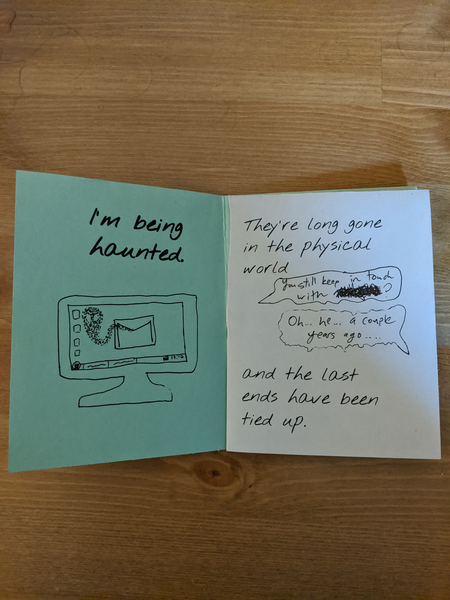 I'm being
haunted.
They're long gone
in the physical
world
You still keep in touch
with ?
Oh... he... a couple
years ago....
and the last
ends have been
tied up.